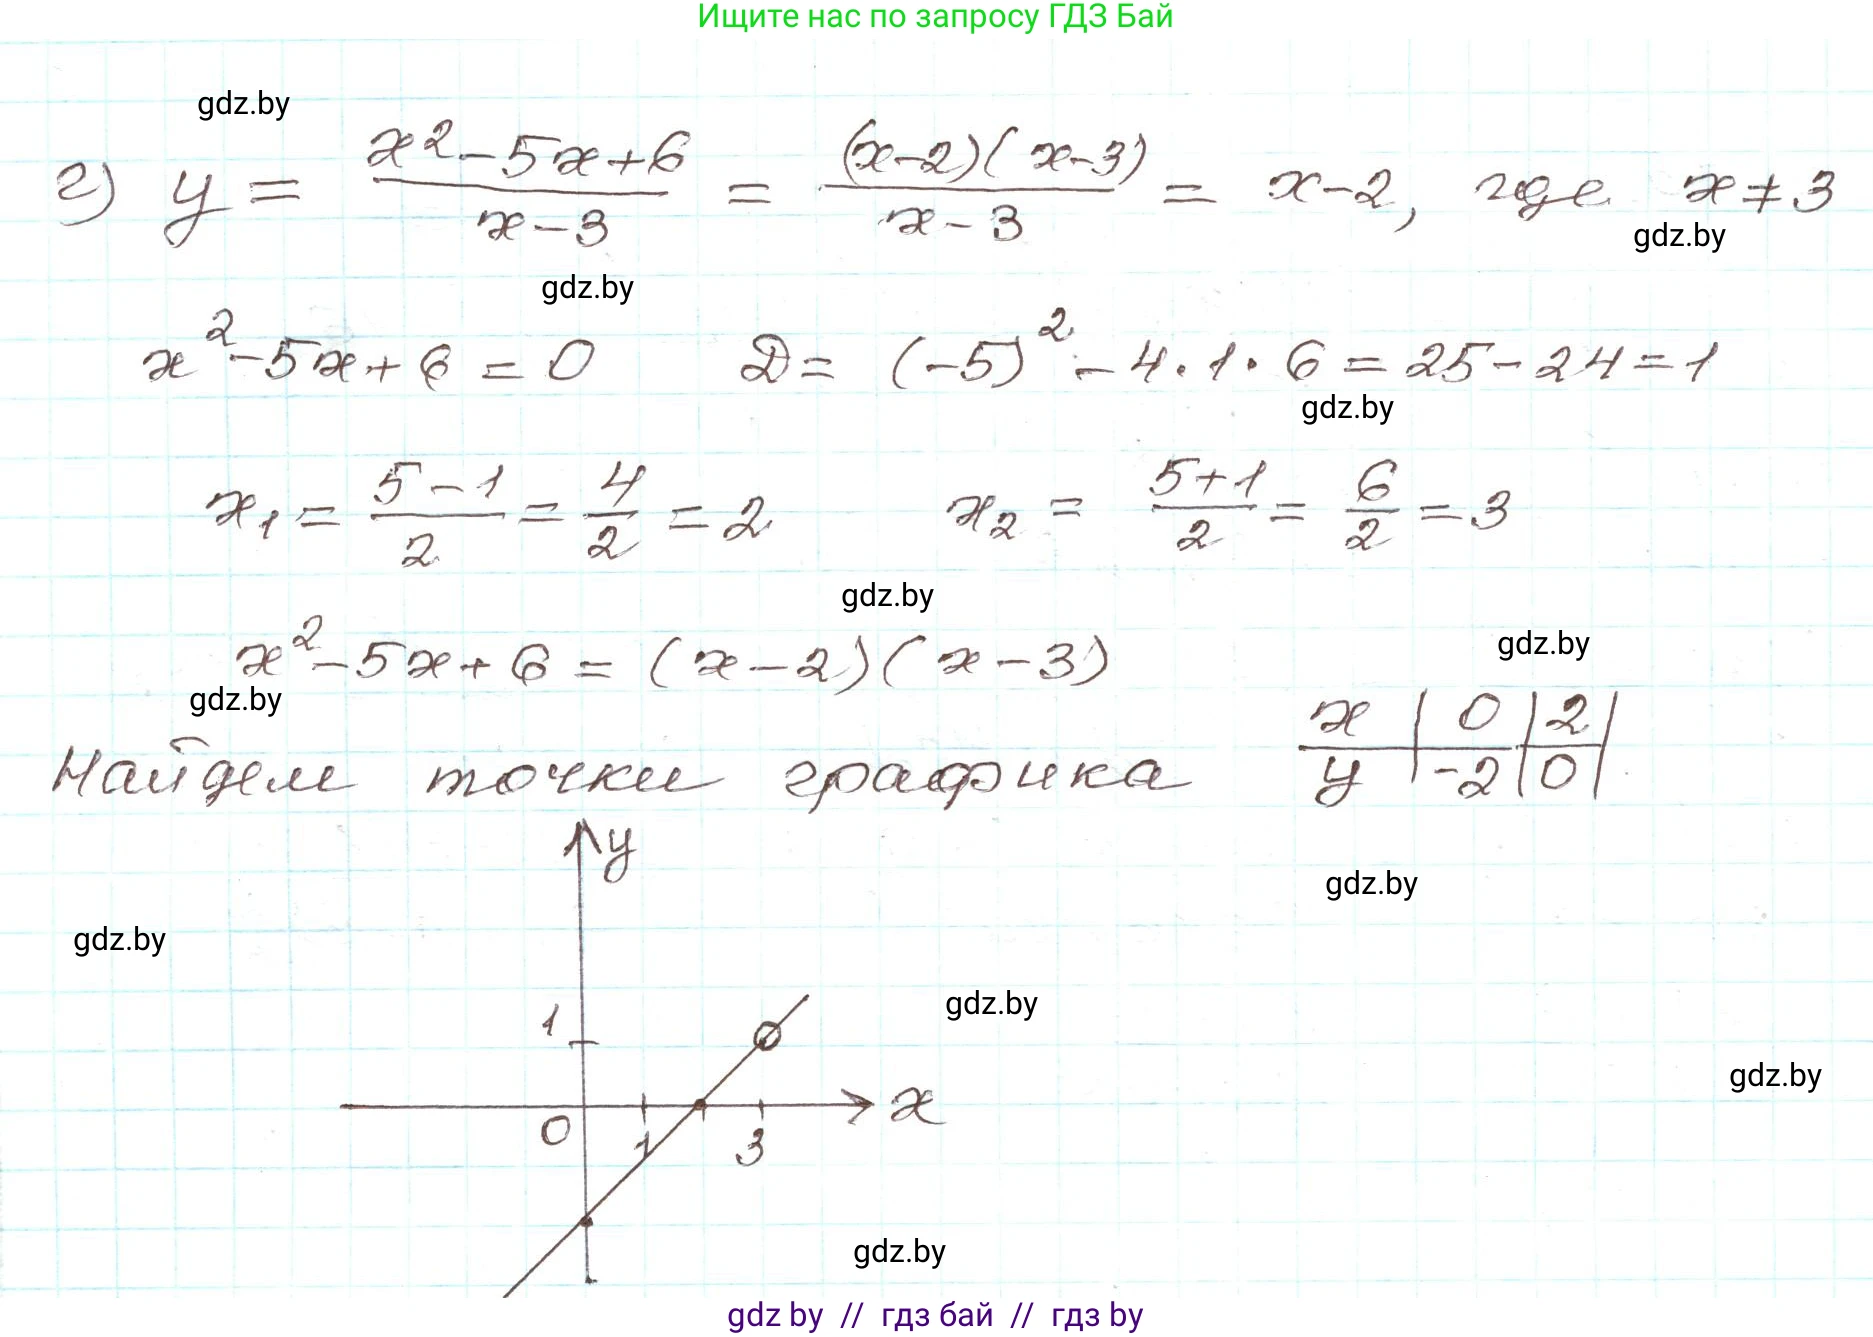 Ищите нас по запросу ГДЗ Бай
gdz.by
г) y = (x² - 5x + 6)/(x - 3) = ((x - 2)(x - 3))/(x - 3) = x - 2, где x ≠ 3
gdz.by
gdz.by
x² - 5x + 6 = 0 D = (-5)² - 4 · 1 · 6 = 25 - 24 = 1
gdz.by
x₁ = (5 - 1)/2 = 4/2 = 2 x₂ = (5 + 1)/2 = 6/2 = 3
gdz.by
gdz.by
x² - 5x + 6 = (x - 2)(x - 3)
gdz.by
Найдем точки графика
x | 0 | 2 |
y | -2 | 0 |
y
gdz.by
gdz.by
gdz.by
1
gdz.by
x
0 1 3
gdz.by
gdz by // гдз бай // гдз by